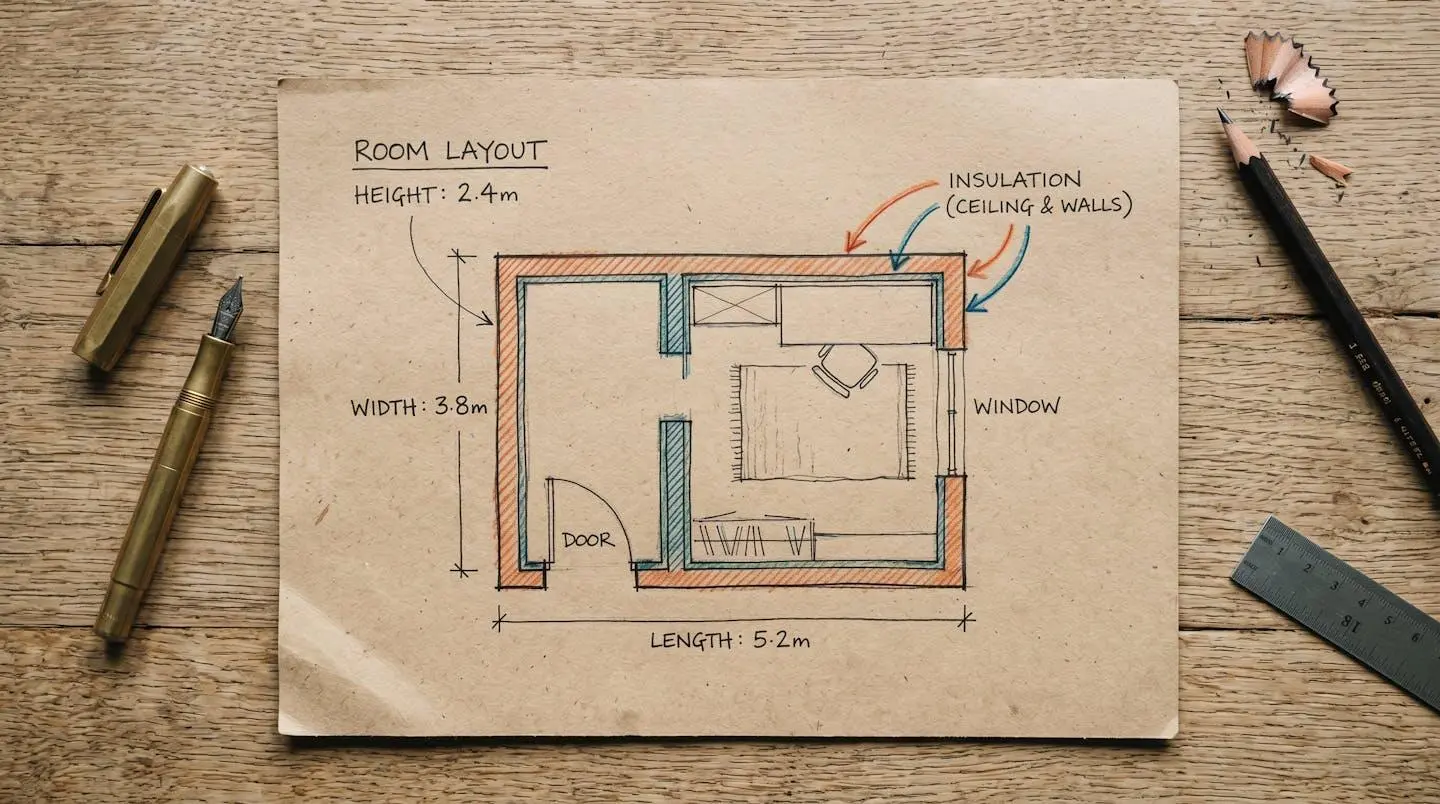 ROOM LAYOUT
HEIGHT: 2.4m
INSULATION
(CEILING & WALLS)
WIDTH: 3.8m
WINDOW
DOOR
LENGTH: 5.2m
1 2 3 4 5 6
18